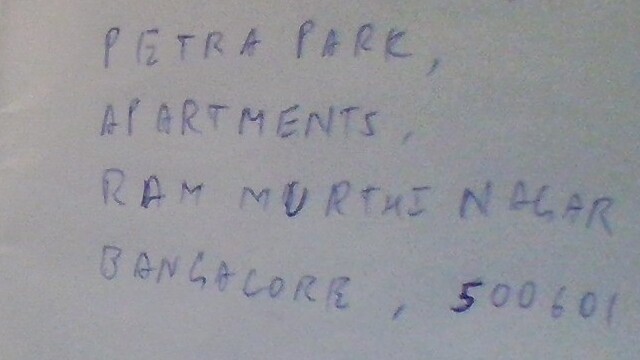 PETRA PARK,
APARTMENTS,
RAM MURTHI NAGAR
BANGALORE, 500601